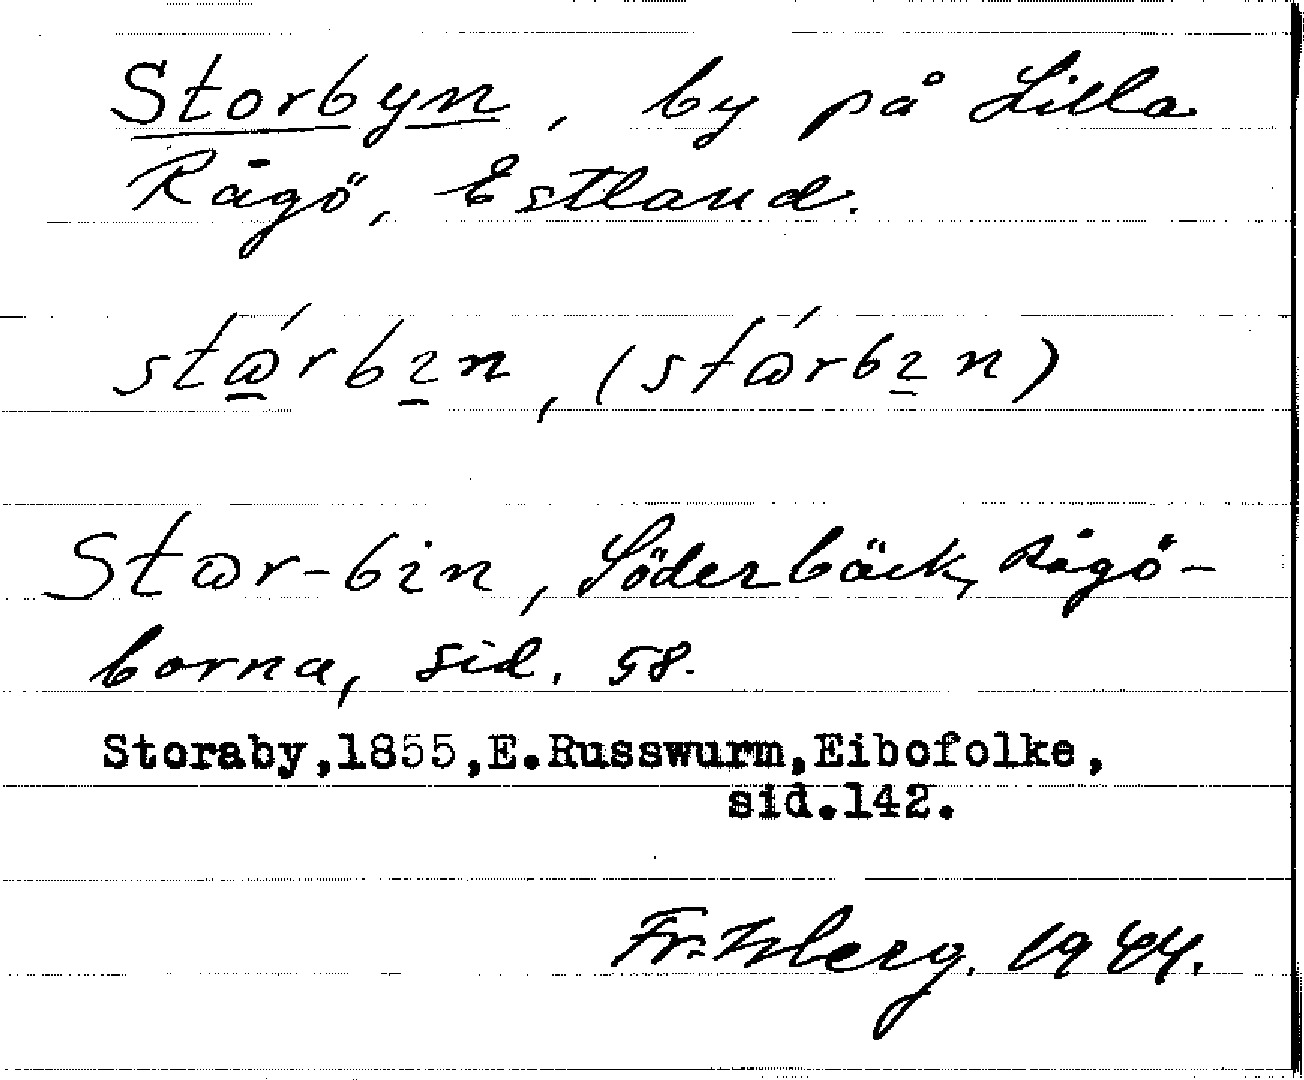 Storbyn, by på Lilla
Rågö, Estland.
stɷ̠́rbɿ̠n, (stɷ́rbɿ̠n)
Stɷr-bin, Söderbäck, Rågö-
borna, sid. 58.
Storaby,1855,E.Russwurm,Eibofolke,
sid.142.
Fr. Isberg. 1944.